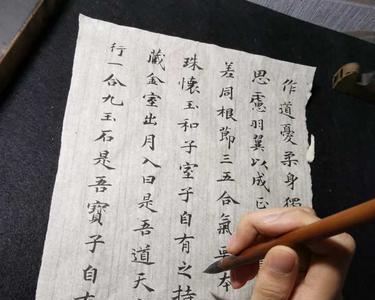 作道憂柔身獨
思慮羽翼以成正
差同根節三五合氣要本
珠懷玉和子室子自有之持
藏金室出月入日是吾道天
行一合九玉石是吾寶子自有